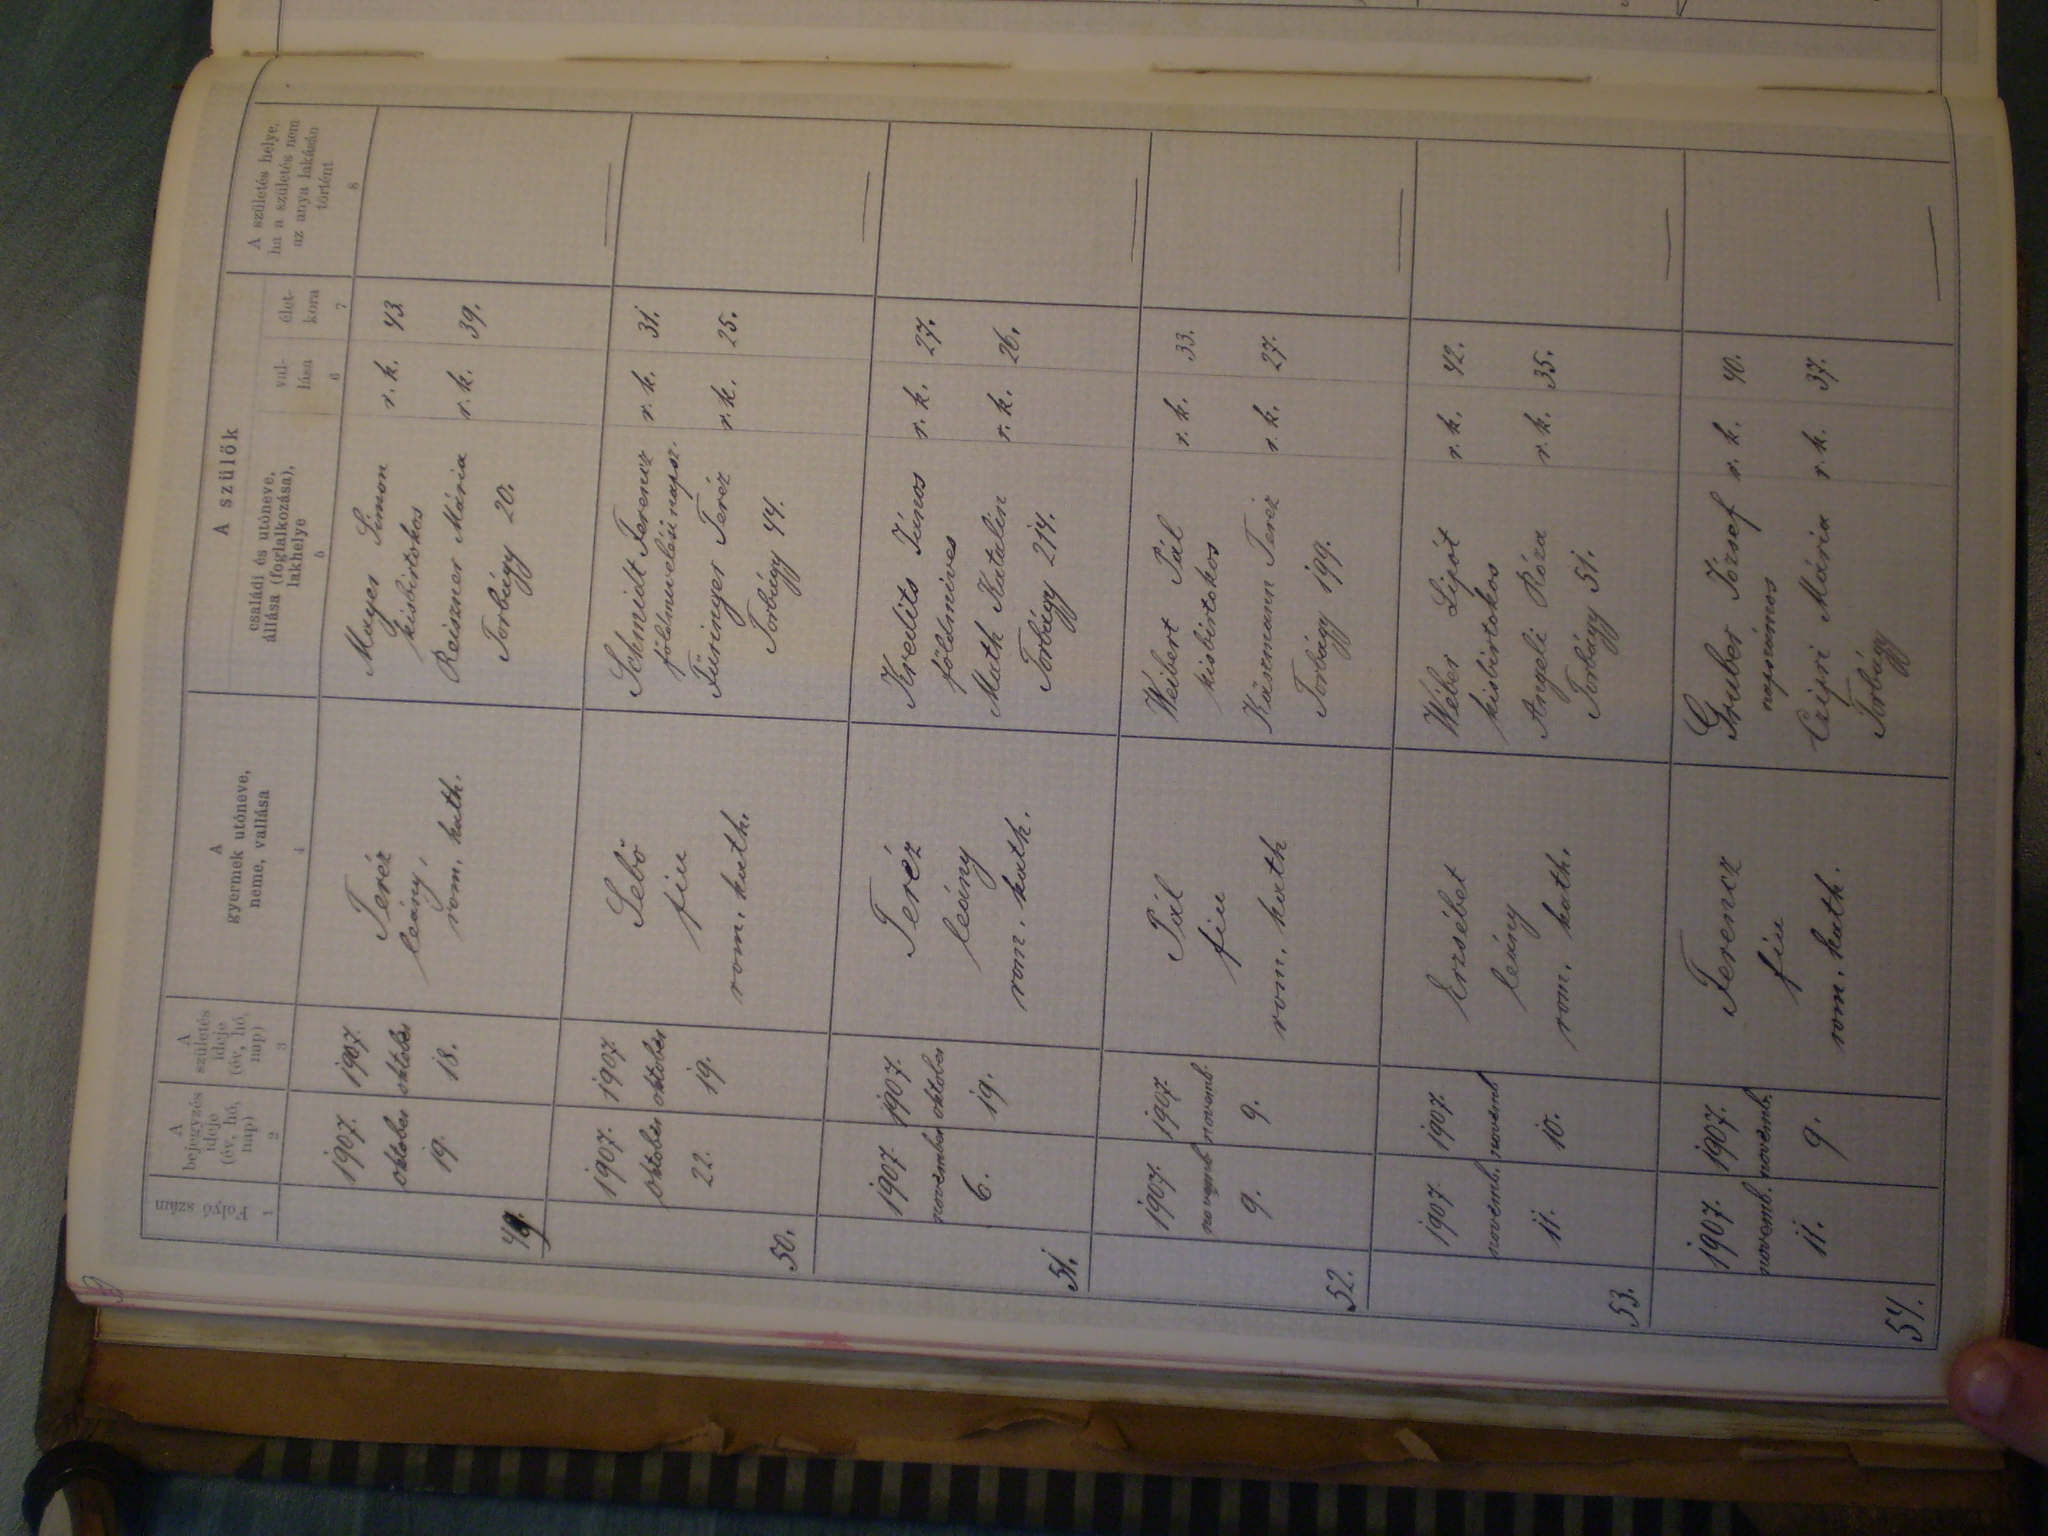 Folyó szám
1
A
bejegyzés
ideje
(év, hó,
nap)
2
A
születés
ideje
(év, hó,
nap)
3
A
gyermek utóneve,
neme, vallása
4
A szülők
családi és utóneve,
állása (foglalkozása),
lakhelye
5
val-
lása
6
élet-
kora
7
A születés helye,
ha a születés nem
az anya lakásán
történt
8
49.
1907.
október
19.
1907.
október
18.
Teréz
leány
rom. kath.
Mayer Simon
kisbirtokos
Reiszner Mária
Torbágy 20.
r. k.
r. k.
43
39.
50.
1907.
október
22.
1907.
október
19.
Sebő
fiu
rom. kath.
Schmidt Ferencz
földmivelési napsz.
Füringer Teréz
Torbágy 44.
r. k.
r. k.
31.
25.
51.
1907
november
6.
1907.
október
19.
Teréz
leány
rom. kath.
Kredlits János
földmives
Math Katalin
Torbágy 214.
r. k.
r. k.
27.
26.
52.
1907.
novemb.
9.
1907.
novemb.
9.
Pál
fiu
rom. kath
Weibert Pál
kisbirtokos
Käszmann Teréz
Torbágy 199.
r. k.
r. k.
33.
27.
53.
1907.
novemb.
11.
1907.
novemb
10.
Erzsébet
leány
rom. kath.
Wéber Lipót
kisbirtokos
Angeli Róza
Torbágy 51.
r. k.
r. k.
42.
35.
54.
1907.
novemb.
11.
1907.
novemb.
9.
Ferencz
fiu
rom. kath.
Gruber József
napszámos
Czipri Mária
Torbágy
r. k.
r. k.
40.
37.